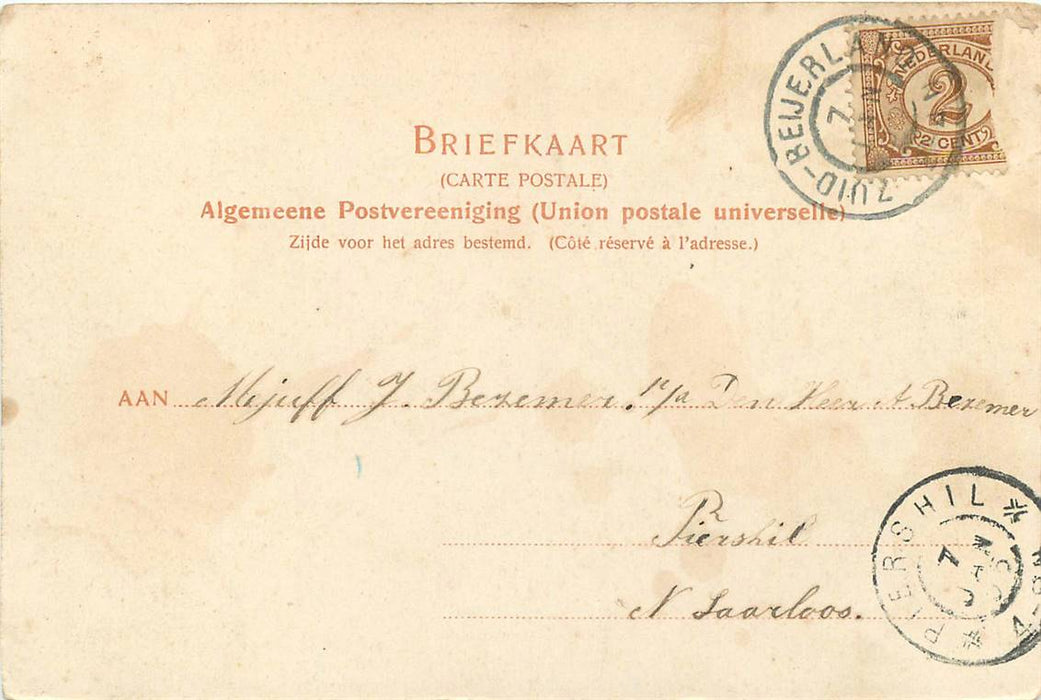 ZUID-BEIJERLAND
7
NEDERLAND
2
2 CENT
BRIEFKAART
(CARTE POSTALE)
Algemeene Postvereeniging (Union postale universelle)
Zijde voor het adres bestemd. (Côté réservé à l'adresse.)
AAN Mejuff J. Bezemer. p/a Den Heer A Bezemer
Piershil
N Saarloos.
PIERSHIL
7